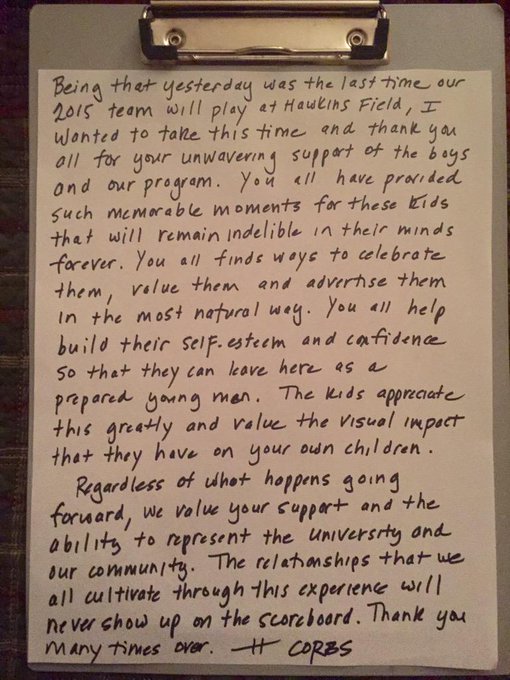 Being that yesterday was the last time our
2015 team will play at Hawkins Field, I
wanted to take this time and thank you
all for your unwavering support of the boys
and our program. You all have provided
such memorable moments for these kids
that will remain indelible in their minds
forever. You all finds ways to celebrate
them, value them and advertise them
in the most natural way. You all help
build their self-esteem and confidence
so that they can leave here as a
prepared young man. The kids appreciate
this greatly and value the visual impact
that they have on your own children.
Regardless of what happens going
forward, we value your support and the
ability to represent the university and
our community. The relationships that we
all cultivate through this experience will
never show up on the scoreboard. Thank you
many times over. CORBS